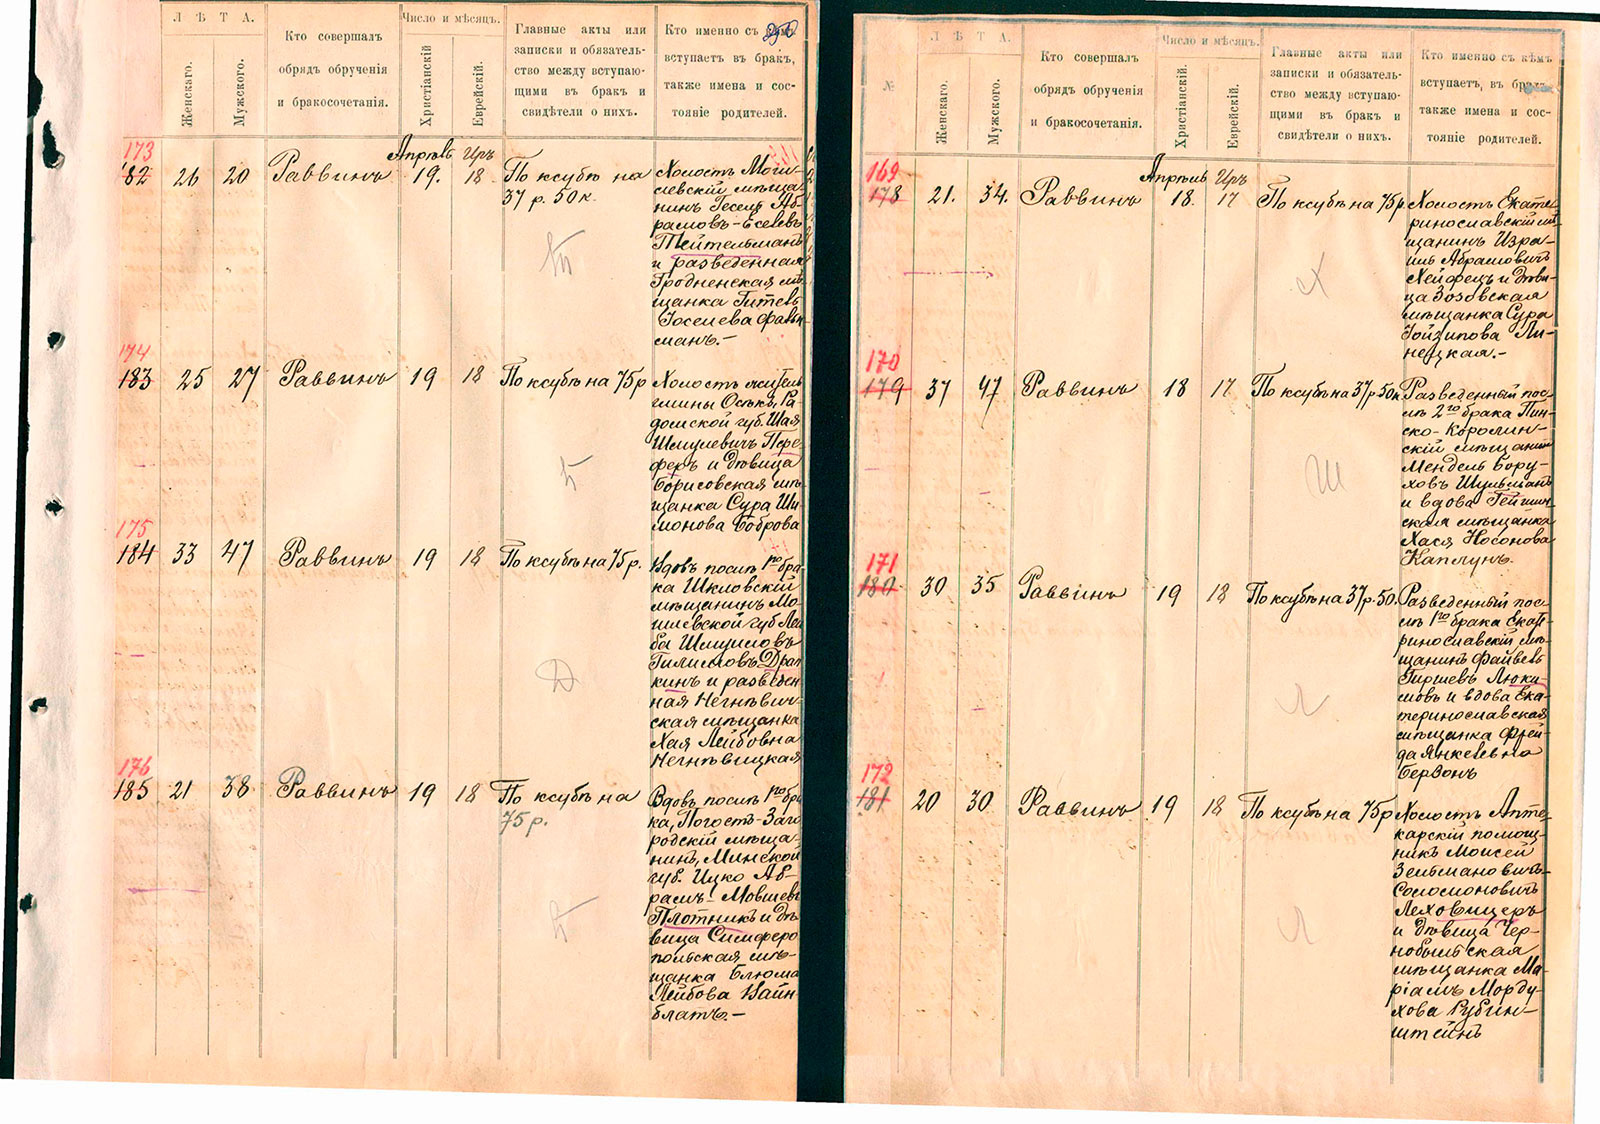 Л Ѣ Т А.
Женскаго.
Мужского.
Кто совершалъ
обрядъ обрученія
и бракосочетанія.
Число и мѣсяцъ.
Христіанскій
Еврейскій.
Главные акты или
записки и обязатель-
ство между вступаю-
щими въ бракъ и
свидѣтели о нихъ.
Кто именно съ кѣмъ
вступаетъ въ бракъ,
также имена и сос-
тояніе родителей.
173
182 26 20 Раввинъ Апрѣль 19. Иръ 18
По ксубѣ на
37 р. 50 к.
Холостъ Моги-
левскій мѣща-
нинъ Гесель Аб-
рамовъ-Есеевъ
Тейтельманъ
и разведенная
Гродненская мѣ-
щанка Гитель
Іоселева Фальк-
манъ.-
174
183 25 27 Раввинъ 19 18 По ксубѣ на 75 р
Холостъ житель
гмины Осѣкъ, Ра-
домской губ. Шая
Шмулевичъ Пере-
феръ и дѣвица
Борисовская мѣ-
щанка Сура Ши-
монова Боброва
175
184 33 47 Раввинъ 19 18 По ксубѣ на 75 р.
Вдовъ послѣ 1го бра-
ка Шкловскій
мѣщанинъ Мо-
гилевской губ Лей-
ба Шмуиловъ
Гилимовъ Драп
кинъ и разведен
ная Негнѣвич-
ская мѣщанка
Хая Лейбовна
Негнѣвицкая
176
185 21 38 Раввинъ 19 18
По ксубѣ на
75 р.
Вдовъ послѣ 1го бра
ка, Погостъ-Заго
родскій мѣща-
нинъ, Минской
губ. Ицко Аб-
рамъ-Мовшевъ
Плотникъ и дѣ
вица Симферо
польская мѣ-
щанка Блюма
Лейбова Вайн-
блатъ.-
№
Л Ѣ Т А.
Женскаго.
Мужского.
Кто совершалъ
обрядъ обрученія
и бракосочетанія.
Число и мѣсяцъ.
Христіанскій.
Еврейскій.
Главные акты или
записки и обязатель-
ство между вступаю-
щими въ бракъ и
свидѣтели о нихъ.
Кто именно съ кѣмъ
вступаетъ въ бракъ,
также имена и сос-
тояніе родителей.
169
178 21. 34. Раввинъ Апрѣль 18. Иръ 17 По ксубѣ на 75 р.
Холостъ Екате-
ринославскій мѣ-
щанинъ Изра-
иль Абрамовичъ
Хейфецъ и дѣви-
ца Зозовская
мѣщанка Сура
Іойзипова Ли-
нецкая.-
170
179 37 47 Раввинъ 18 17 По ксубѣ на 37 р. 50 к
Разведенный пос-
лѣ 2го брака Пин-
ско-Каролин-
скій мѣщанинъ
Мендель Бору-
ховъ Шульманъ
и вдова Гейшин
ская мѣщанка
Хася Носонова
Каплунъ.
171
180 30 35 Раввинъ 19 18 По ксубѣ на 37 р. 50.
Разведенный пос-
лѣ 1го брака Екате
ринославскій мѣ-
щанинъ Файвель
Гиршевъ Люки-
мовъ и вдова Ека-
теринославская
мѣщанка Фрей-
да Янкелевна
Бердонъ
172
181 20 30 Раввинъ 19 18 По ксубѣ на 75 р
Холостъ Апте-
карскій помощ-
никъ Моисей
Зельмановичъ-
Соломоновичъ
Леховицеръ
и дѣвица Чер-
нобыльская
мѣщанка Ма-
ріамъ Морду-
хова Рубин-
штейнъ